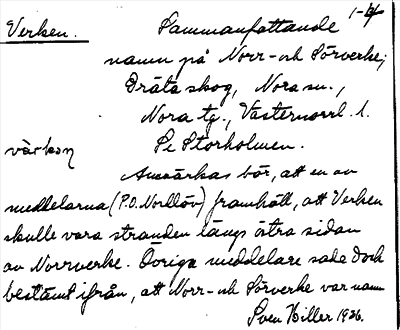 Verken. Sammanfattande 1-
namn på Norr- och Sörverke;
skog, Nora sn.,
Nora tg., Västernorrl. l.
Se Storholmen.
Anmärkas bör, att en av
meddelarna (P.O. Norllöv) framhöll, att Verken
skulle vara stranden längs östra sidan
av Norrverke. Övriga meddelare sade dock
bestämt ifrån, att Norr- och Sörverke var namn
Sven Hiller 1936.